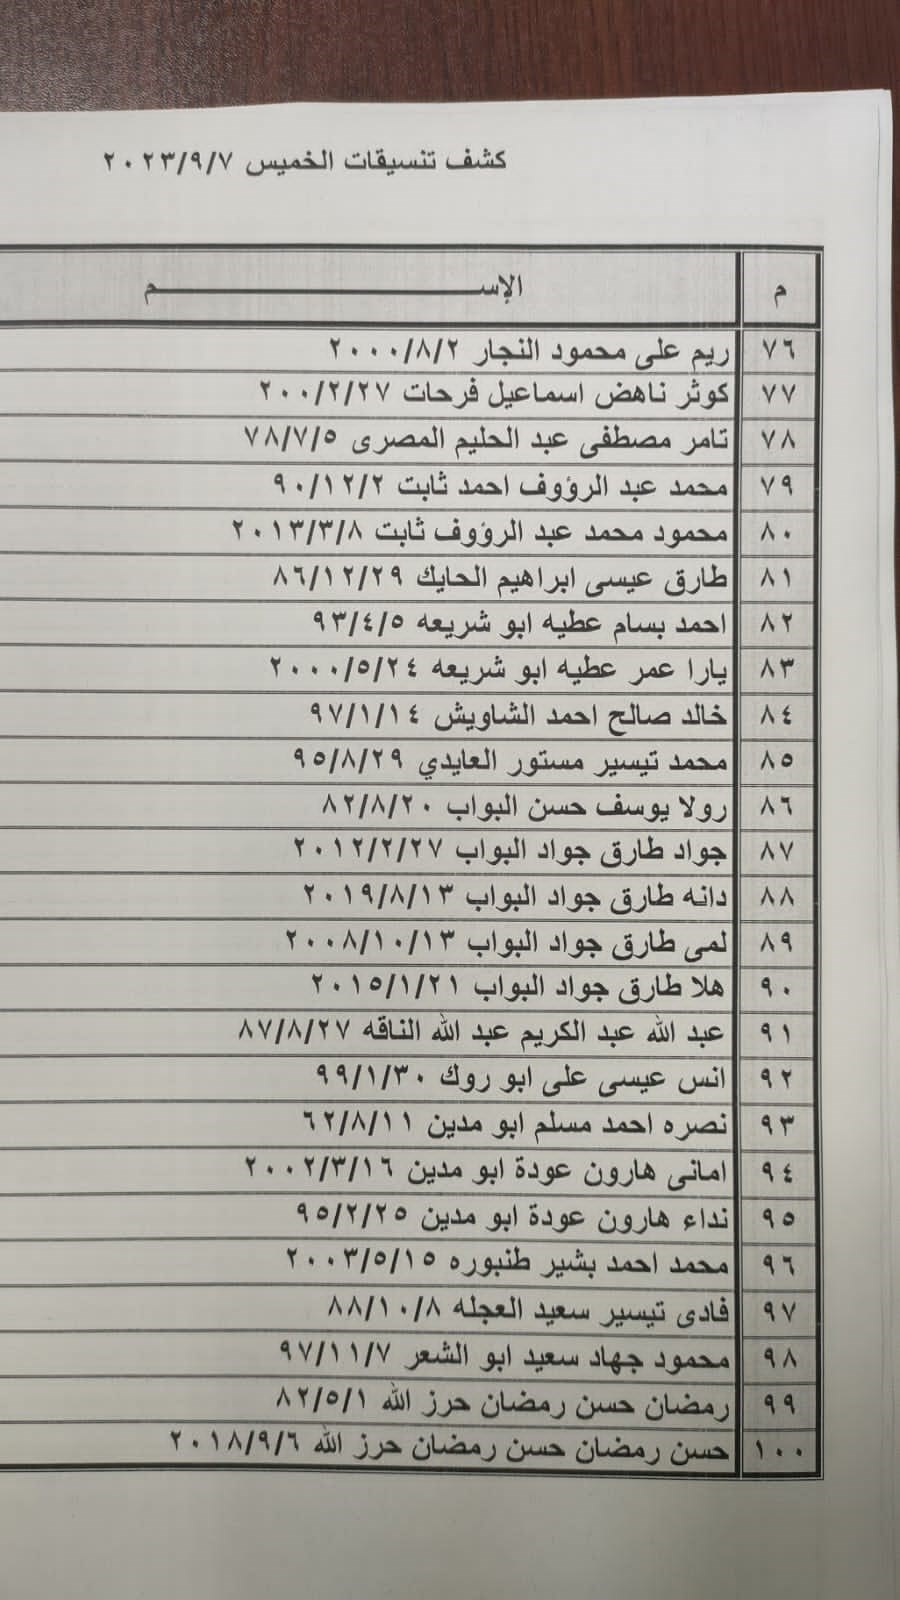 كشف تنسيقات الخميس ٢٠٢٣/٩/٧
م الإســـــــــــم
٧٦ ريم على محمود النجار ٢٠٠٠/٨/٢
٧٧ كوثر ناهض اسماعيل فرحات ٢٠٠/٢/٢٧
٧٨ تامر مصطفى عبد الحليم المصرى ٧٨/٧/٥
٧٩ محمد عبد الرؤوف احمد ثابت ٩٠/١٢/٢
٨٠ محمود محمد عبد الرؤوف ثابت ٢٠١٣/٣/٨
٨١ طارق عيسى ابراهيم الحايك ٨٦/١٢/٢٩
٨٢ احمد بسام عطيه ابو شريعه ٩٣/٤/٥
٨٣ يارا عمر عطيه ابو شريعه ٢٠٠٠/٥/٢٤
٨٤ خالد صالح احمد الشاويش ٩٧/١/١٤
٨٥ محمد تيسير مستور العايدي ٩٥/٨/٢٩
٨٦ رولا يوسف حسن البواب ٨٢/٨/٢٠
٨٧ جواد طارق جواد البواب ٢٠١٢/٢/٢٧
٨٨ دانه طارق جواد البواب ٢٠١٩/٨/١٣
٨٩ لمى طارق جواد البواب ٢٠٠٨/١٠/١٣
٩٠ هلا طارق جواد البواب ٢٠١٥/١/٢١
٩١ عبد الله عبد الكريم عبد الله الناقه ٨٧/٨/٢٧
٩٢ انس عيسى على ابو روك ٩٩/١/٣٠
٩٣ نصره احمد مسلم ابو مدين ٦٢/٨/١١
٩٤ امانى هارون عودة ابو مدين ٢٠٠٢/٣/١٦
٩٥ نداء هارون عودة ابو مدين ٩٥/٢/٢٥
٩٦ محمد احمد بشير طنبوره ٢٠٠٣/٥/١٥
٩٧ فادى تيسير سعيد العجله ٨٨/١٠/٨
٩٨ محمود جهاد سعيد ابو الشعر ٩٧/١١/٧
٩٩ رمضان حسن رمضان حرز الله ٨٢/٥/١
١٠٠ حسن رمضان حسن رمضان حرز الله ٢٠١٨/٩/٦